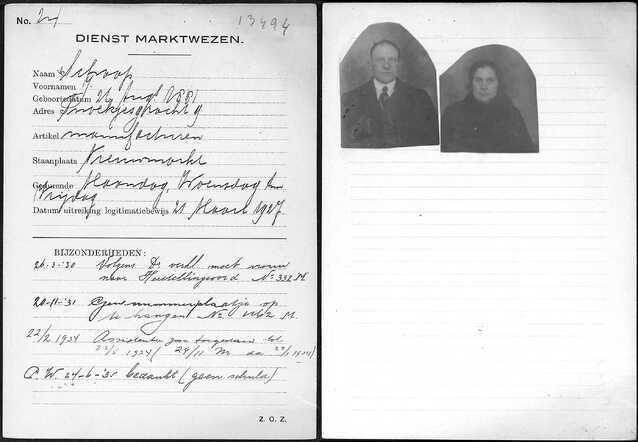 No. 24 13494
DIENST MARKTWEZEN.
Naam Schoop
Voornamen J.
Geboortedatum 24 Aug. 1881
Adres
Artikel manufacturen
Staanplaats Nieuwmarkt
Gedurende Maandag, Woensdag en
Vrijdag
Datum uitreiking legitimatiebewijs 21 Maart 1927
BIJZONDERHEDEN:
26-3-'30 Volgens Dr. verkl. moet vrouw
naar Herstellingsoord No 332 M.
20-11-'31 Geen nummerplaatje op
te hangen No M.
22/2 1934 Assistentie zoon toegestaan tot
22/5 1934 (29/11 M dd 22/2 1934)
P.W. 27-6-'35 bedankt (geen schuld)
Z. O. Z.